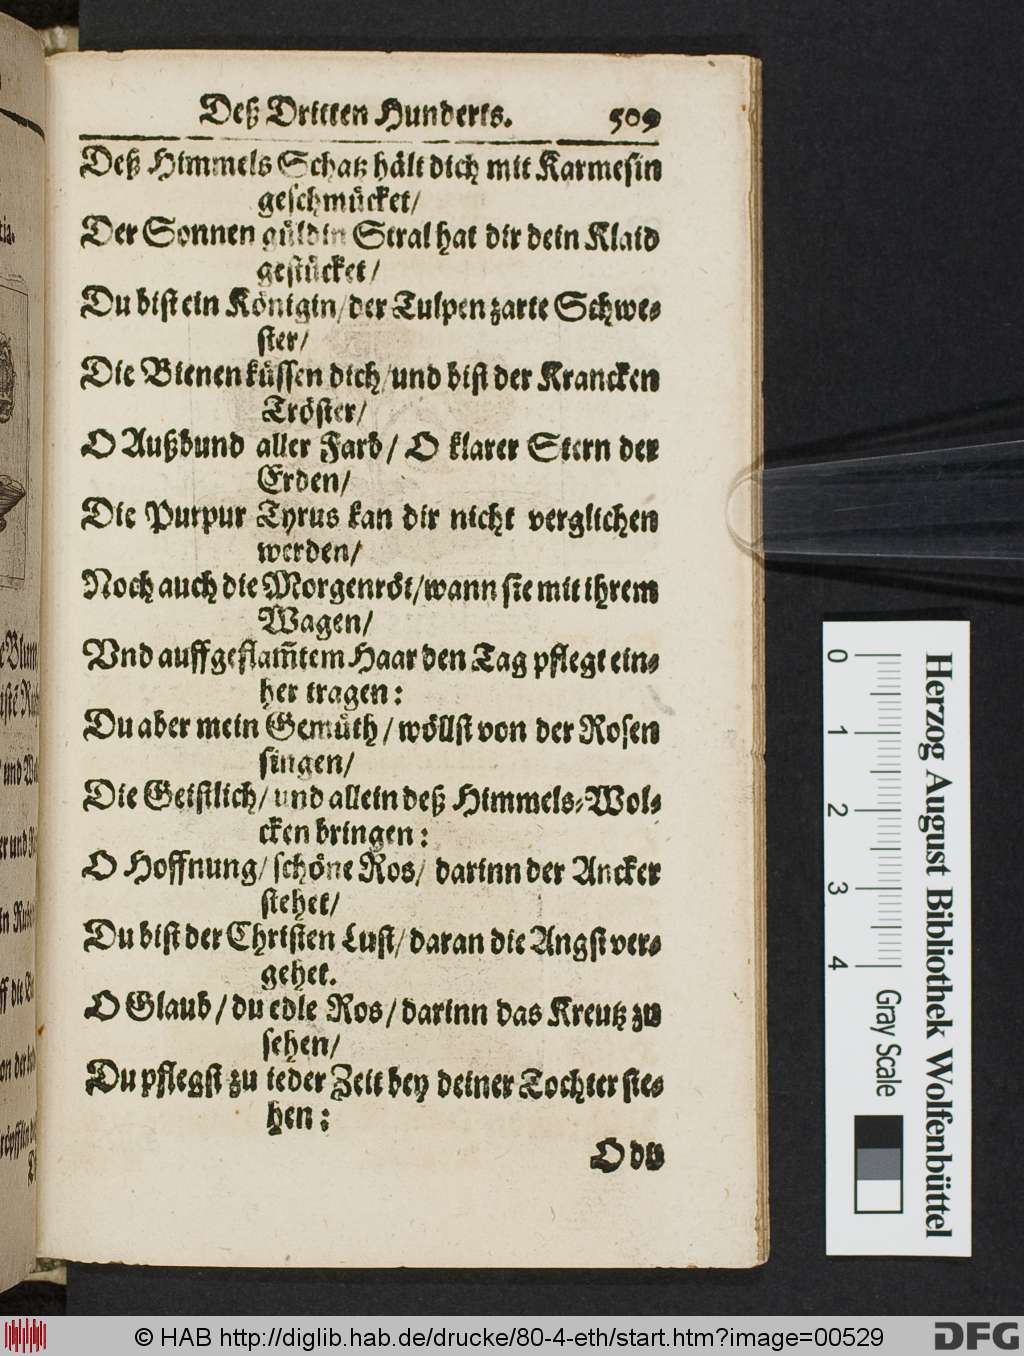 Deß Dritten Hunderts. 509
Deß Himmels Schatz hält dich mit Karmesin
geschmücket/
Der Sonnen güldin Stral hat dir dein Klaid
gestücket/
Du bist ein Königin/der Tulpen zarte Schwe-
ster/
Die Bienen küssen dich/und bist der Krancken
Tröster/
O Außbund aller Farb/ O klarer Stern der
Erden/
Die Purpur Tyrus kan dir nicht verglichen
werden/
Noch auch die Morgenröt/wann sie mit ihrem
Wagen/
Vnd auffgeflam̃tem Haar den Tag pflegt ein-
her tragen:
Du aber mein Gemüth/ wöllst von der Rosen
singen/
Die Geistlich/und allein deß Himmels-Wol-
cken bringen:
O Hoffnung/ schöne Ros/ darinn der Ancker
stehet/
Du bist der Christen Lust/daran die Angst ver-
gehet.
O Glaub/du edle Ros/darinn das Kreutz zu
sehen/
Du pflegst zu ieder Zeit bey deiner Tochter ste-
hen:
O du
0 1 2 3 4
Gray Scale
Herzog August Bibliothek Wolfenbüttel
© HAB http://diglib.hab.de/drucke/80-4-eth/start.htm?image=00529
DFG